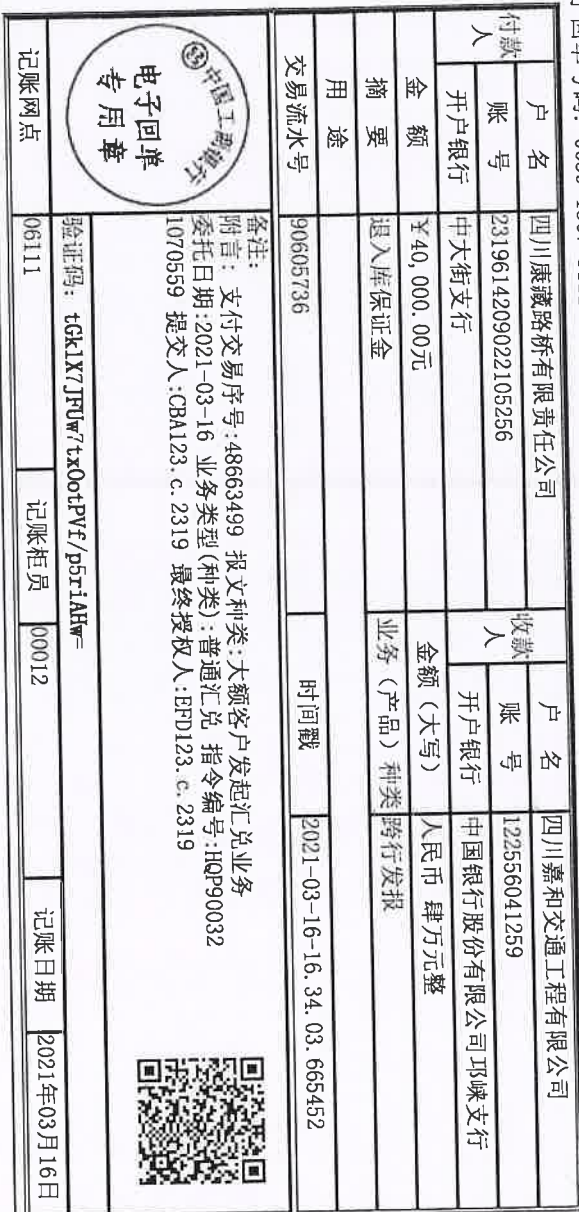 付款人
户 名
四川康藏路桥有限责任公司
账 号
2319614209022105256
开户银行
中大街支行
收款人
户 名
四川嘉和交通工程有限公司
账 号
122556041259
开户银行
中国银行股份有限公司邛崃支行
金 额
¥40,000.00元
金额（大写）
人民币 肆万元整
摘 要
退入库保证金
业务（产品）种类
跨行发报
用 途
交易流水号
90605736
时间戳
2021-03-16-16.34.03.665452
中国工商银行
电子回单
专用章
备注：
附言：支付交易序号:48663499 报文种类:大额客户发起汇兑业务
委托日期:2021-03-16 业务类型(种类):普通汇兑 指令编号:HQP90032
1070559 提交人:CBA123.c.2319 最终授权人:EFD123.c.2319
验证码：tGk1X7JFUw7txOotPVf/p5riAHw=
记账网点
06111
记账柜员
00012
记账日期
2021年03月16日